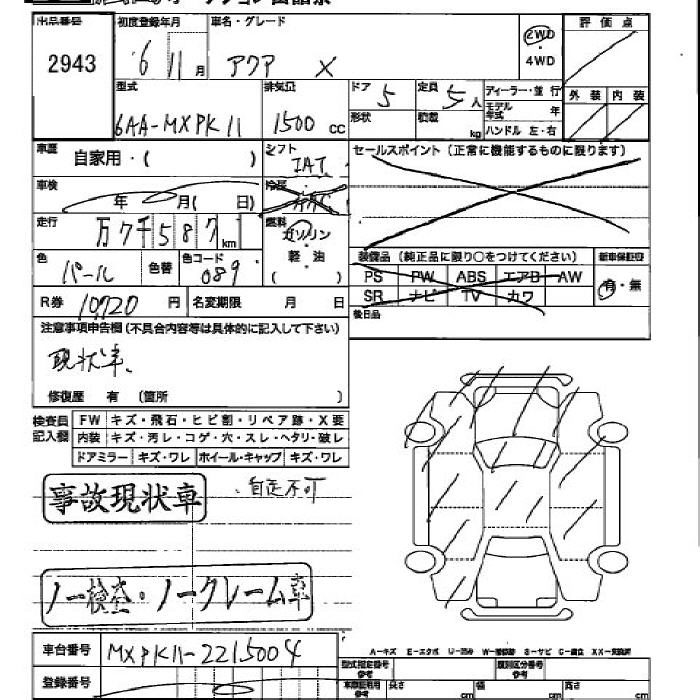 出品番号
2943
初度登録年月
6 11 月
車名・グレード
アクア X
2WD
・
4WD
評価点
型式
6AA-MXPK11
排気量
1500 cc
ドア 5
形状
定員 5 人
積載 kg
ディーラー・並行
モデル年式 年
ハンドル 左・右
外装 内装
車歴 自家用・( )
シフト
IAT
車検 年 月( 日)
冷房
AAC
セールスポイント (正常に機能するものに限ります)
走行 万 7千 5 8 7 km
燃料
ガソリン
軽・油
( )
色 パール 色替
色コード 089
装備品 (純正品に限り○をつけてください)
PS PW ABS エアB AW
SR ナビ TV カワ
新車保証書
有・無
R券 10720 円
名変期限 月 日
後日品
注意事項申告欄 (不具合内容等は具体的に記入して下さい)
現状車、
修復歴 有 (箇所 )
検査員記入欄
FW キズ・飛石・ヒビ割・リペア跡・X要
内装 キズ・汚レ・コゲ・穴・スレ・ヘタリ・破レ
ドアミラー キズ・ワレ ホイール・キャップ キズ・ワレ
事故現状車
・自走不可
ノー検査・ノークレーム車
車台番号 MXPK11-2215004
登録番号
A-キズ E-エクボ U-凹み
型式指定番号 参考
類別区分番号 参考
長さ cm
幅 cm
高さ cm